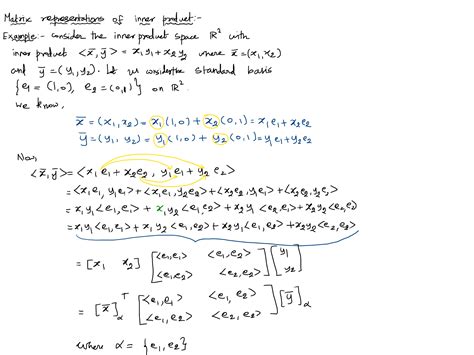 Matrix representations of inner product:-
Example:- consider the inner product space ℝ² with
inner product <x̄,ȳ> = x₁y₁+x₂y₂ where x̄=(x₁,x₂)
and ȳ=(y₁,y₂). Let us consider the standard basis
{e₁=(1,0), e₂=(0,1)} on ℝ².
We know,
x̄=(x₁,x₂)=x₁(1,0)+x₂(0,1)=x₁e₁+x₂e₂
ȳ=(y₁,y₂)=y₁(1,0)+y₂(0,1)=y₁e₁+y₂e₂
Now,
<x̄,ȳ>=<x₁e₁+x₂e₂, y₁e₁+y₂e₂>
=<x₁e₁,y₁e₁>+<x₁e₁,y₂e₂>+<x₂e₂,y₁e₁>+<x₂e₂,y₂e₂>
=x₁y₁<e₁,e₁>+x₁y₂<e₁,e₂>+x₂y₁<e₂,e₁>+x₂y₂<e₂,e₂>
=x₁y₁<e₁,e₁>+x₁y₂<e₁,e₂>+x₂y₁<e₁,e₂>+x₂y₂<e₂,e₂>
=[x₁ x₂] [<e₁,e₁> <e₁,e₂>] [y₁]
[<e₁,e₂> <e₂,e₂>] [y₂]
=[x̄]ᵀ_α [<e₁,e₁> <e₁,e₂>] [ȳ]_α
[<e₁,e₂> <e₂,e₂>]
where α = {e₁,e₂}